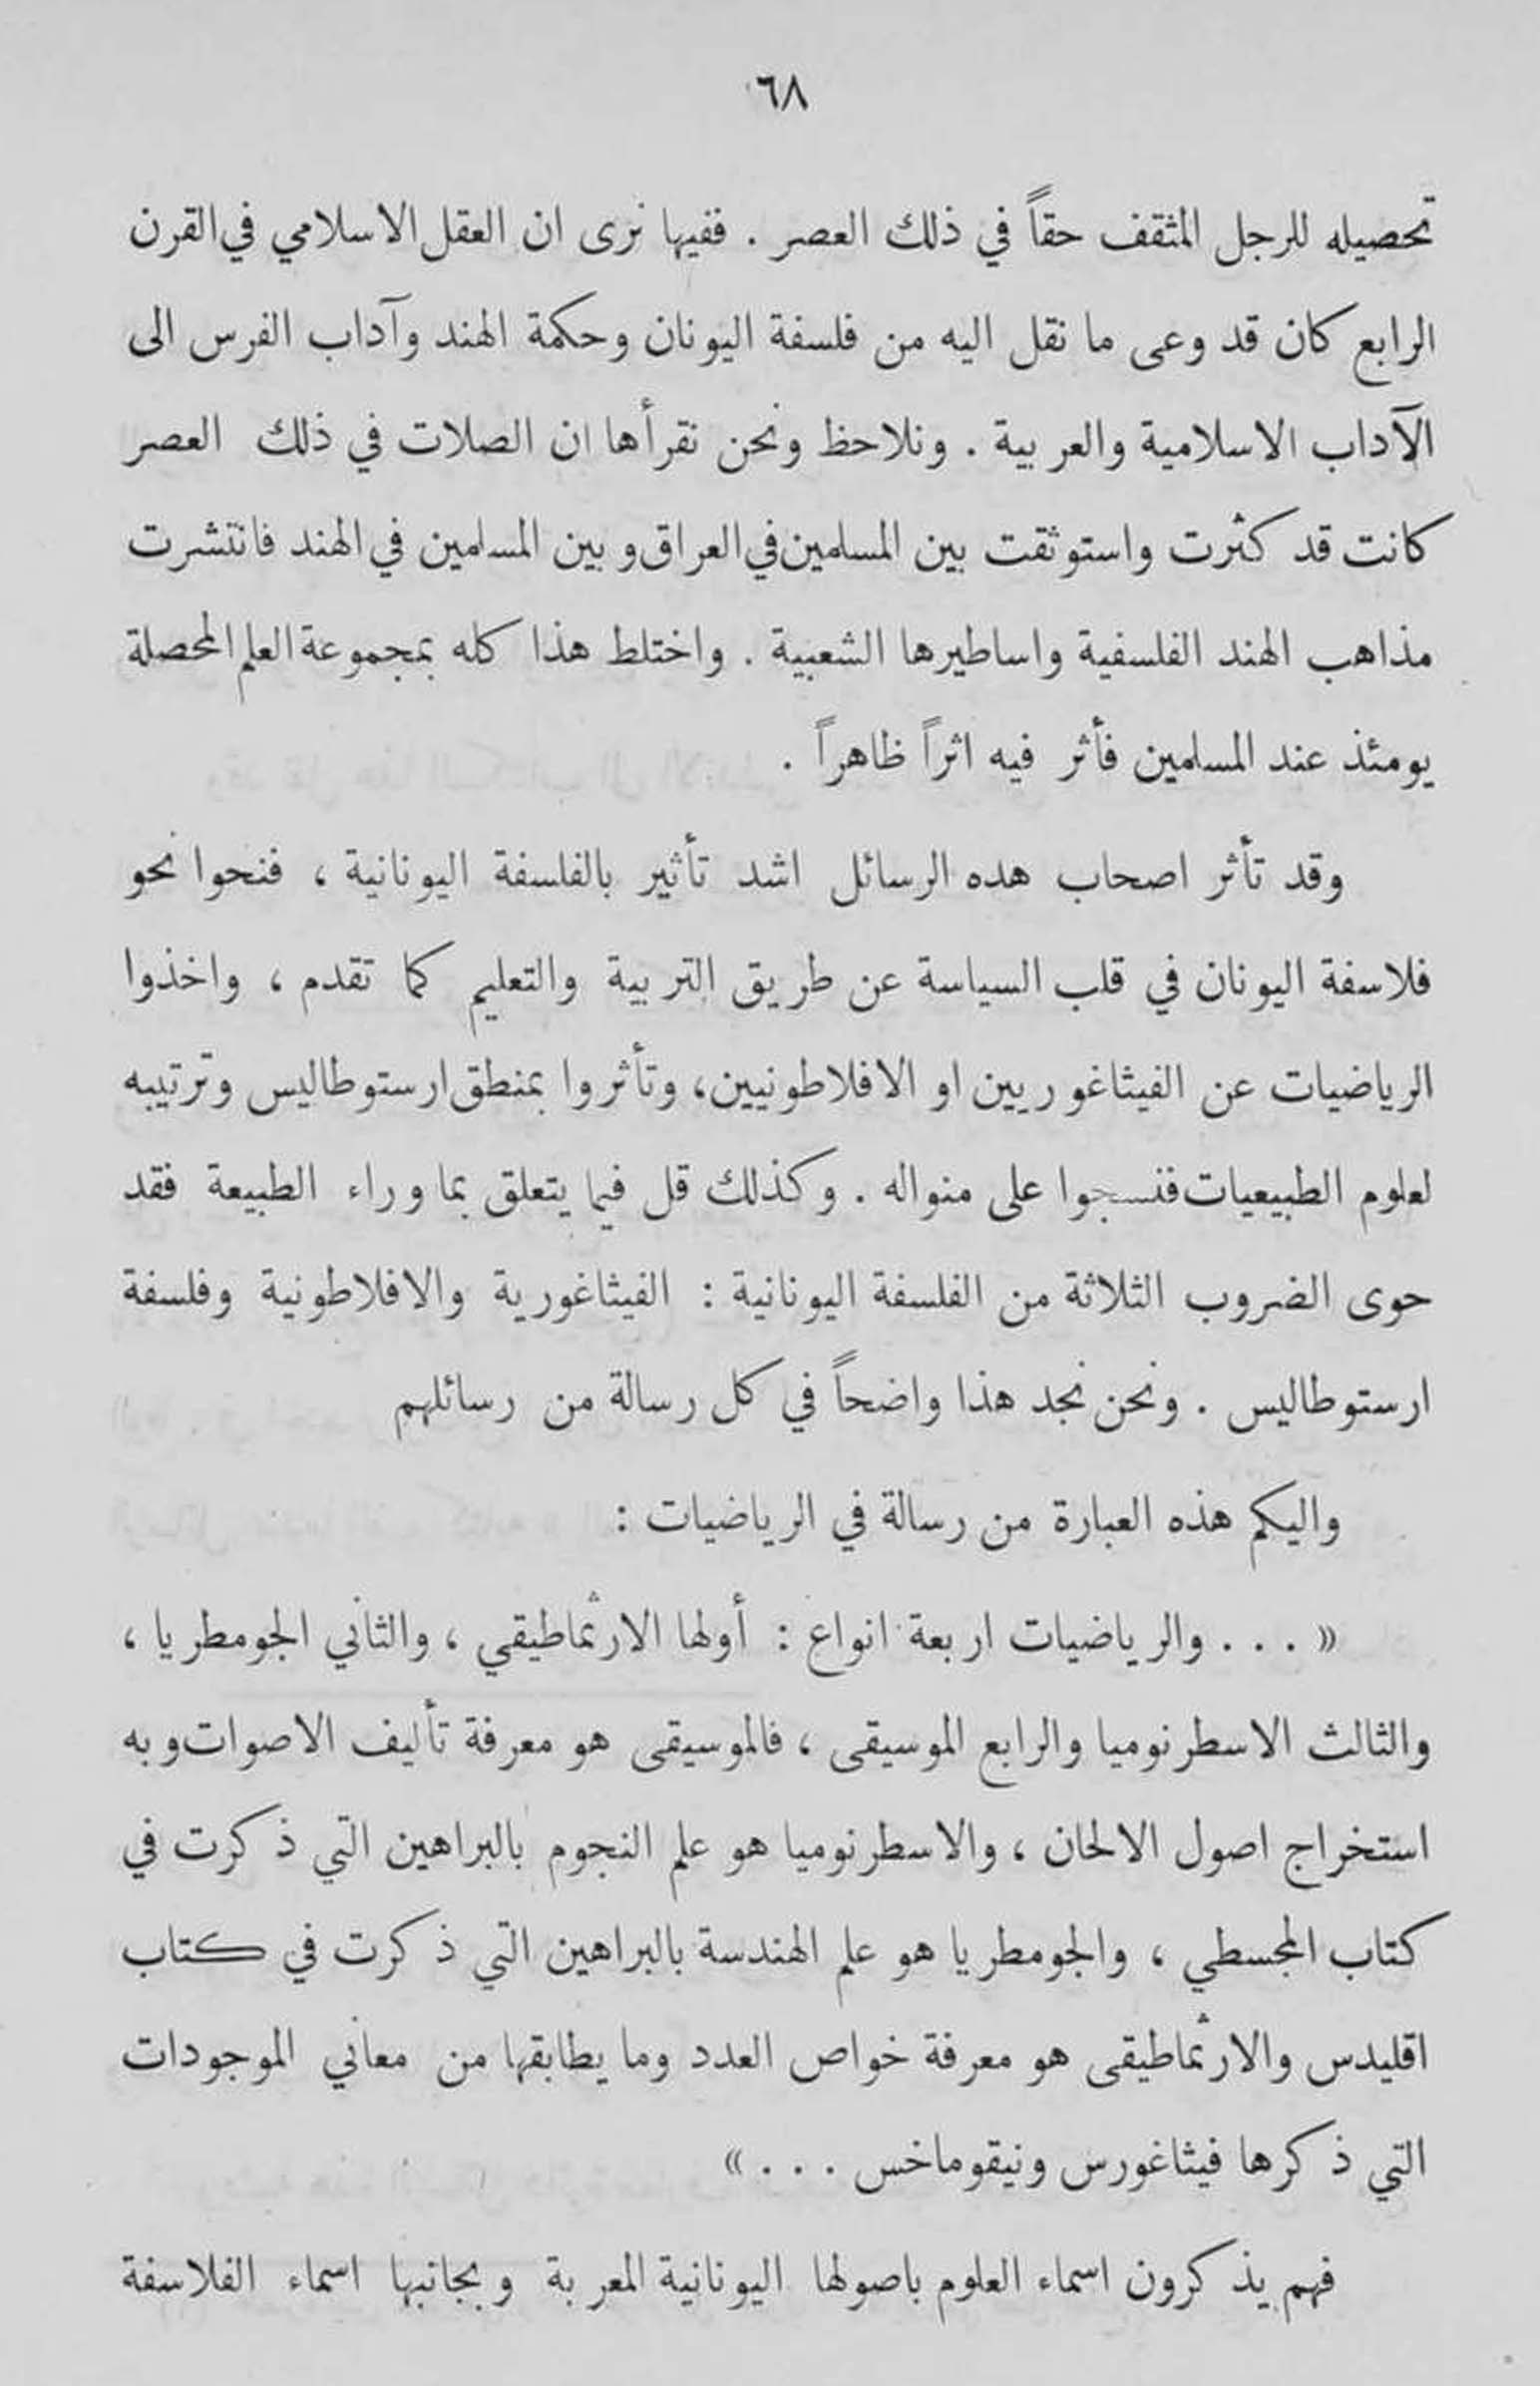 ٦٨
تحصيله للرجل المثقف حقاً في ذلك العصر . ففيها نرى ان العقل الاسلامي في القرن
الرابع كان قد وعى ما نقل اليه من فلسفة اليونان وحكمة الهند وآداب الفرس الى
الآداب الاسلامية والعربية . ونلاحظ ونحن نقرأها ان الصلات في ذلك العصر
كانت قد كثرت واستوثقت بين المسلمين في العراق وبين المسلمين في الهند فانتشرت
مذاهب الهند الفلسفية واساطيرها الشعبية . واختلط هذا كله بمجموعة العلم المحصلة
يومئذ عند المسلمين فأثر فيه اثراً ظاهراً .
وقد تأثر اصحاب هده الرسائل اشد تأثير بالفلسفة اليونانية ، فنحوا نحو
فلاسفة اليونان في قلب السياسة عن طريق التربية والتعليم كما تقدم ، واخذوا
الرياضيات عن الفيثاغوريين او الافلاطونيين، وتأثروا بمنطق ارستوطاليس وترتيبه
لعلوم الطبيعيات فنسجوا على منواله . وكذلك قل فيما يتعلق بما وراء الطبيعة فقد
حوى الضروب الثلاثة من الفلسفة اليونانية : الفيثاغورية والافلاطونية وفلسفة
ارستوطاليس . ونحن نجد هذا واضحاً في كل رسالة من رسائلهم
واليكم هذه العبارة من رسالة في الرياضيات :
« . . . والرياضيات اربعة انواع : أولها الارثماطيقي ، والثاني الجومطريا ،
والثالث الاسطرنوميا والرابع الموسيقى ، فالموسيقى هو معرفة تأليف الاصوات وبه
استخراج اصول الالحان ، والاسطرنوميا هو علم النجوم بالبراهين التي ذكرت في
كتاب المجسطي ، والجومطريا هو علم الهندسة بالبراهين التي ذكرت في كتاب
اقليدس والارثماطيقى هو معرفة خواص العدد وما يطابقها من معاني الموجودات
التي ذكرها فيثاغورس ونيقوماخس . . . »
فهم يذكرون اسماء العلوم باصولها اليونانية المعربة وبجانبها اسماء الفلاسفة